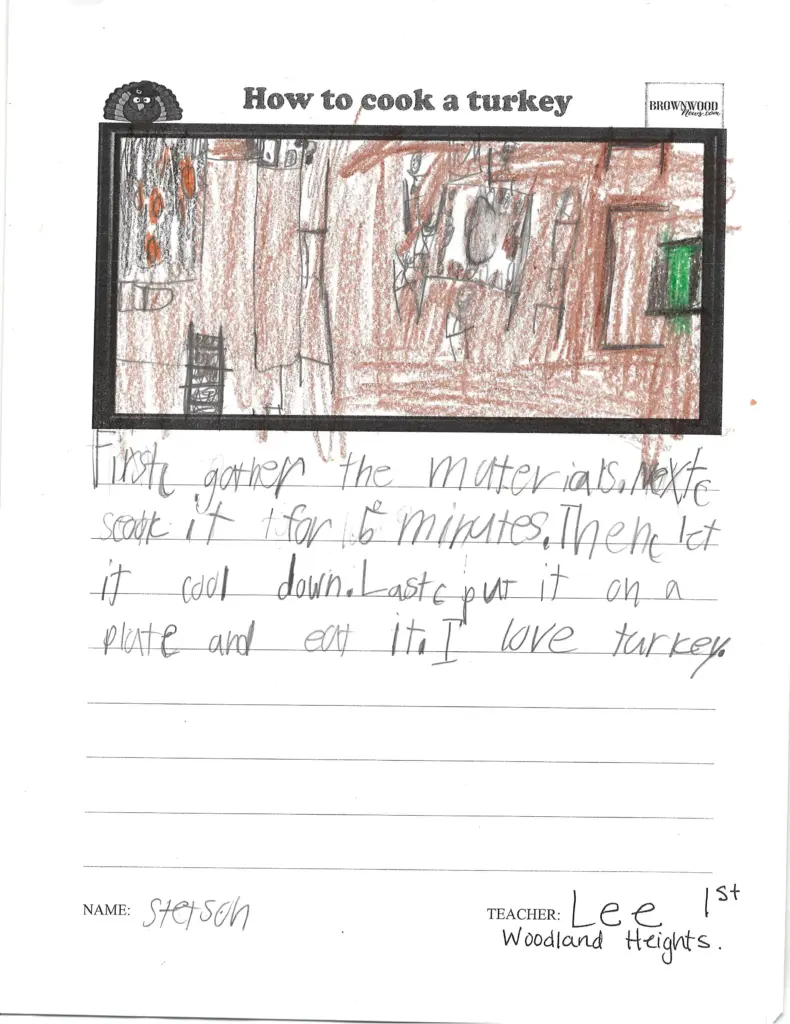 How to cook a turkey
BROWNWOOD
News.com
First, gather the materials. Next,
it for minutes. Then, let
it cool down. Last, put it on a
plate and eat it. I love turkey.
NAME: Stetson
TEACHER: Lee 1st
Woodland Heights.